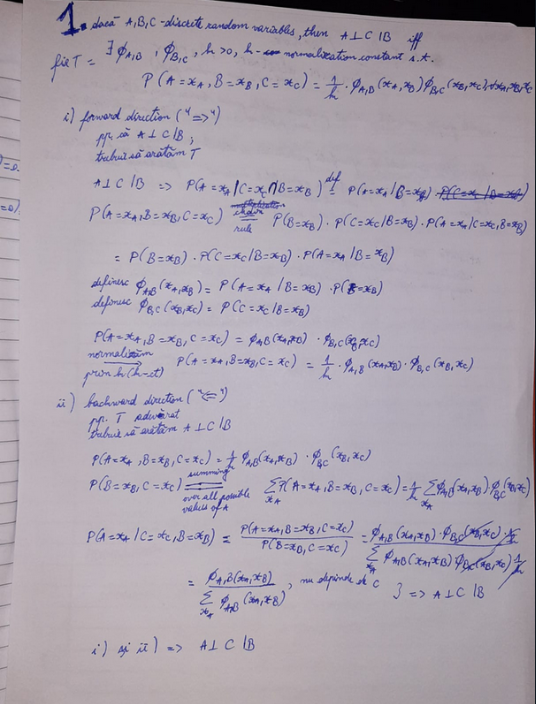 1. dacă A,B,C - discrete random variables, then A⊥C|B iff
fie T = ∃ ϕ_{A,B}, ϕ_{B,C}, h>0, h - normalization constant s.t.
P(A=x_A, B=x_B, C=x_C) = 1/h · ϕ_{A,B}(x_A,x_B) ϕ_{B,C}(x_B,x_C), ∀x_A,x_B,x_C
i) forward direction ("=>")
pp. că A⊥C|B,
trebuie să arătăm T
A⊥C|B => P(A=x_A|C=x_C ∩ B=x_B) def= P(A=x_A|B=x_B)
P(A=x_A, B=x_B, C=x_C) = rule P(B=x_B) · P(C=x_C|B=x_B) · P(A=x_A|C=x_C, B=x_B)
= P(B=x_B) · P(C=x_C|B=x_B) · P(A=x_A|B=x_B)
definesc ϕ_{A,B}(x_A,x_B) = P(A=x_A|B=x_B) · P(B=x_B)
definesc ϕ_{B,C}(x_B,x_C) = P(C=x_C|B=x_B)
P(A=x_A, B=x_B, C=x_C) = ϕ_{A,B}(x_A,x_B) · ϕ_{B,C}(x_B,x_C)
normalizăm prin h (h-ct) => P(A=x_A, B=x_B, C=x_C) = 1/h · ϕ_{A,B}(x_A,x_B) · ϕ_{B,C}(x_B,x_C)
ii) backward direction ("<=")
pp. T adevărat
trebuie să arătăm A⊥C|B
P(A=x_A, B=x_B, C=x_C) = 1/h ϕ_{A,B}(x_A,x_B) · ϕ_{B,C}(x_B,x_C)
P(B=x_B, C=x_C) = summing over all possible values of A Σ_{x_A} P(A=x_A, B=x_B, C=x_C) = 1/h Σ_{x_A} ϕ_{A,B}(x_A,x_B) ϕ_{B,C}(x_B,x_C)
P(A=x_A|C=x_C, B=x_B) = P(A=x_A, B=x_B, C=x_C) / P(B=x_B, C=x_C) = ϕ_{A,B}(x_A,x_B) · ϕ_{B,C}(x_B,x_C) · 1/h / Σ_{x_A} ϕ_{A,B}(x_A,x_B) ϕ_{B,C}(x_B,x_C) 1/h
= ϕ_{A,B}(x_A,x_B) / Σ_{x_A} ϕ_{A,B}(x_A,x_B), nu depinde de C } => A⊥C|B
i) și ii) => A⊥C|B